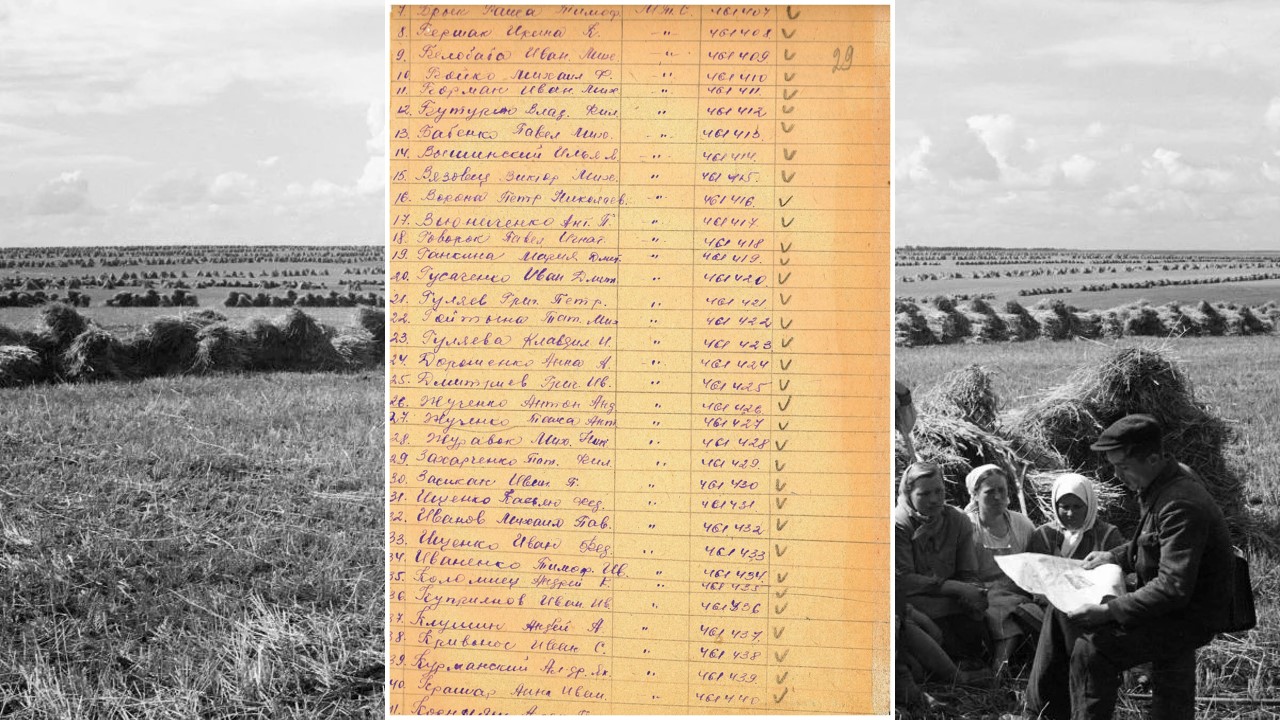 7. Брык Раиса Тимоф. М.т.С. 461407 V
8. Бершак Ирина К. —"— 461408 V
9. Белобаба Иван Мих. —"— 461409 V
29
10. Бойко Михаил Ф. —"— 461410 V
11. Борман Иван Мих —"— 461411 V
12. Бутурло Влад. Фил —"— 461412 V
13. Бабенко Павел Мих. —"— 461413 V
14. Вышинский Илья А —"— 461414 V
15. Вязовец Виктор Мих. —"— 461415 V
16. Ворона Петр Николаев. " 461416 V
17. Ант. П. " 461417 V
18. Говорок Павел Игнат. —"— 461418 V
19. Ганкина Мария Дмит. " 461419. V
20. Гусаченко Иван Дмит " 461420 V
21. Гуляев Григ. Петр. " 461421 V
22. Мих " 461422 V
23. Гуляева Клавдия И. " 461423 V
24. Дорошенко Анна А. " 461424 V
25. Дмитриев Григ. Ив. " 461425 V
26. Жученко Антон Анд " 461426 V
27. Жученко Ант " 461427 V
28. Журавок Мих. Ник " 461428 V
29. Захарченко Фил. " 461429. V
30. Засикан Иван Г. " 461430 V
31. Ищенко Касьмо Фед. " 461431 V
32. Иванов Михаил Пав. " 461432 V
33. Ищенко Иван Фед. " 461433 V
34. Иваненко Тимоф. Ив. " 461434 V
35. Коломиец Андрей Е. " 461435
36. Куприянов Иван Ив. " 461436 V
37. Клушин Андрей А. " 461437. V
38. Кривонос Иван С. " 461438 V
39. Курманский Ал-др. Як. " 461439 V
40. Крашар Анна Иван. " 461440 V